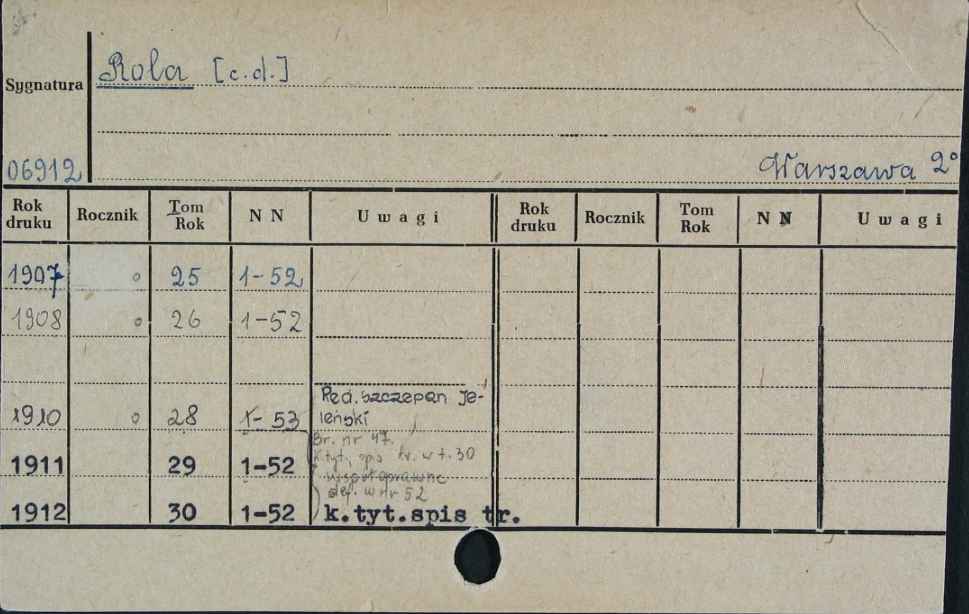 Rola [c.d.]
Sygnatura
06912
Warszawa 2°
Rok druku Rocznik Tom Rok N N Uwagi Rok druku Rocznik Tom Rok N N Uwagi
1907 o 25 1-52
1908 o 26 1-52
1910 o 28 1-53 Red. Szczepan Je-
leński
Br. nr 47.
k.tyt., spis tr. w t. 30
1911 29 1-52 współoprawne
def. w nr 52
1912 30 1-52 k.tyt.spis tr.